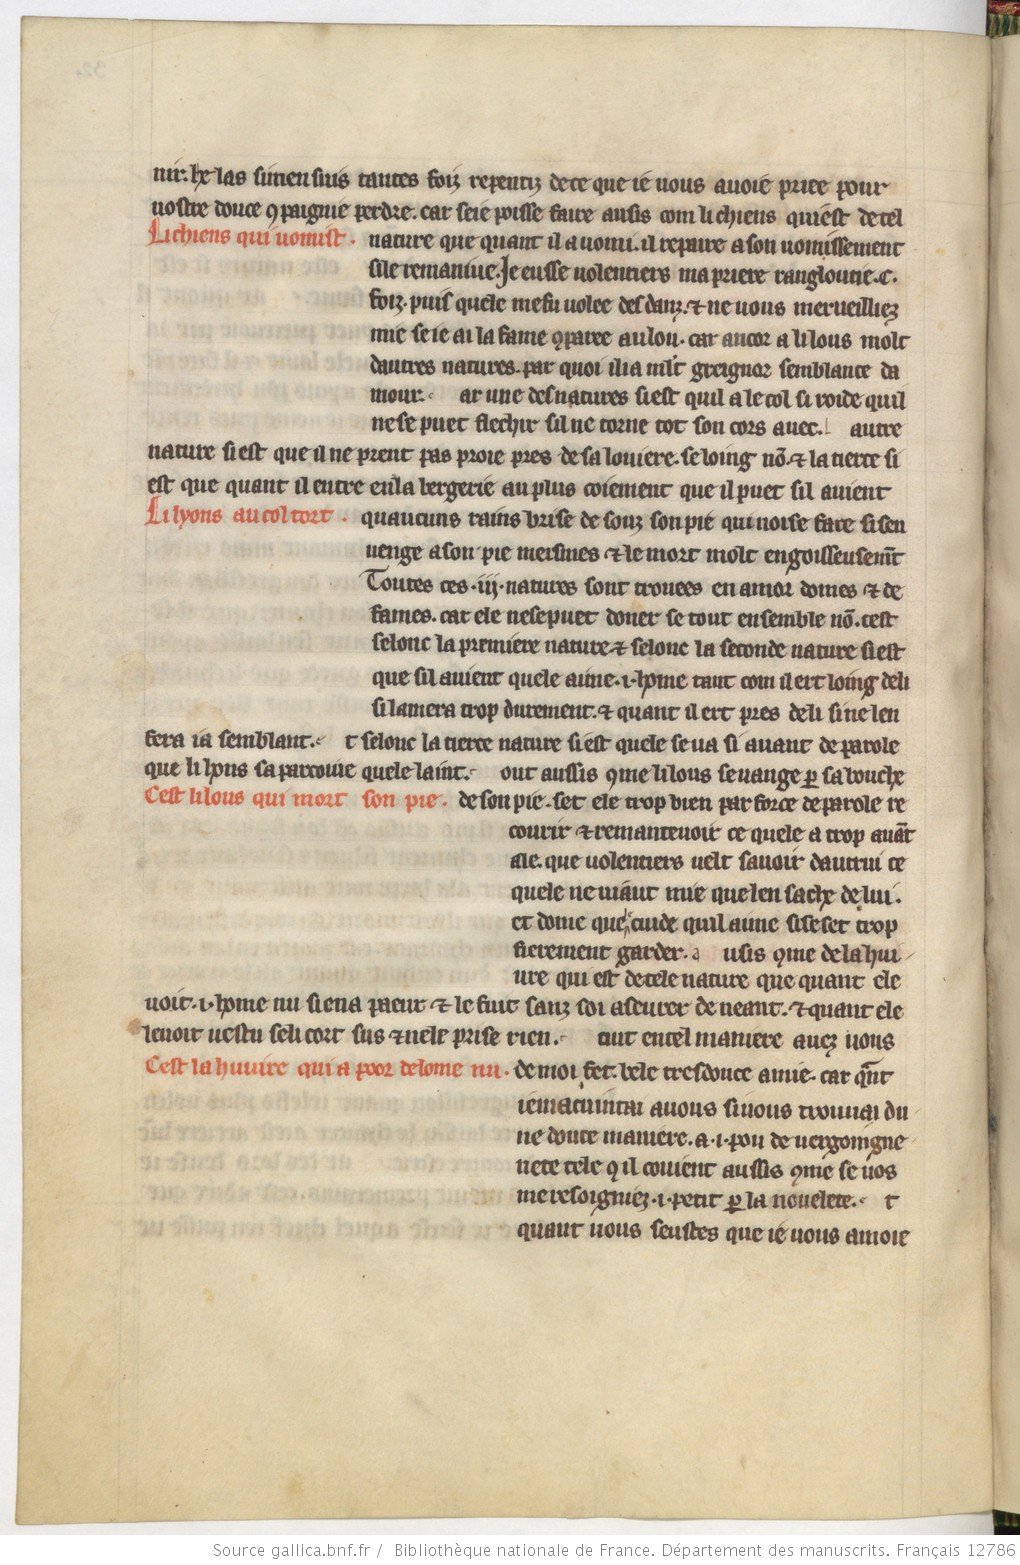 nir. he las si men suis tantes foiz repentiz de ce que ie uous auoie priee pour
uostre douce ꝯpaignie perdre. car se ie poisse faire ausis com li chiens qui est de tel
Li chiens qui uomist. nature que quant il a uomi. il repaire a son uomissement
si le remaniue. Je eusse uolentiers ma priere rangloutie .c.
foiz. puis quele me fu uolee des danz. ⁊ ne uous merueilliez
mie se ie ai la fame ꝯparee au lou. car ancor a li lous molt
dautres natures. par quoi il i a mlt greignor semblance da
mour. ar une des natures si est quil a le col si roide quil
ne se puet flechir sil ne torne tot son cors auec. autre
nature si est que il ne prent pas proie pres de sa louiere. se loing nō. ⁊ la tierce si
est que quant il entre en la bergerie au plus coiement que il puet sil auient
Li lyons au col tort. quaucuns rains brise de souz son pie qui noise face si sen
uenge a son pie meismes ⁊ le mort molt engoisseusemt̄
Toutes ces .iij. natures sont trouees en amor domes ⁊ de
fames. car ele ne se puet doner se tout ensemble nō. cest
selonc la premiere nature ⁊ selonc la seconde nature si est
que sil auient quele aime .i. home tant com il ert loing de li
si lamera trop durement. ⁊ quant il ert pres de li si ne len
fera ia semblant. t selonc la tierce nature si est quele se ua si auant de parole
que li hons saparcoiue quele laint. out aussis ꝯme li lous se uange ꝑ sa bouche
Cest li lous qui mort son pie. de son pie. set ele trop bien par force de parole re
courir ⁊ remanteuoir ce quele a trop auāt
ale. que uolentiers uelt sauoir dautrui ce
quele ne uiaut mie que len sache de lui.
et dome quele cuide quil aime si se set trop
fierement garder. usis ꝯme de la hui
ure qui est de tele nature que quant ele
uoit .i. home nu si en a paeur ⁊ le fuit sanz soi aseurer de neant. ⁊ quant ele
le uoit uestu se li cort sus ⁊ ne le prise rien. out en tel maniere auez uous
Cest la huuire qui a poor de lome nu. de moi fet. bele tres douce amie. car qn̄t
ie macuintai a uous si uous trouuai du
ne douce maniere. a .i. pou de uergoingne
uete tele q̄ il couient aussis ꝯme se uos
me resoigniez .i. petit ꝑ la nouelete. t
quant uous seustes que ie uous amoie